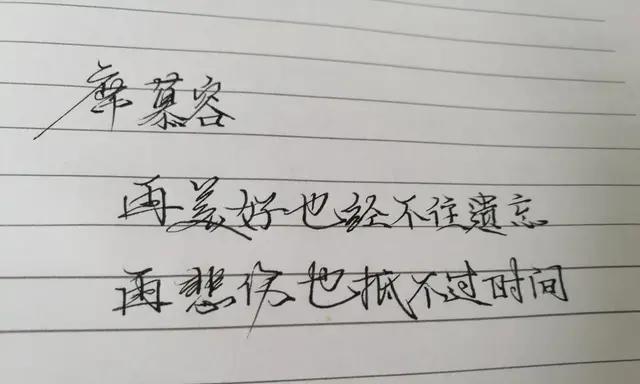 席慕容
再美好也经不住遗忘
再悲伤也抵不过时间